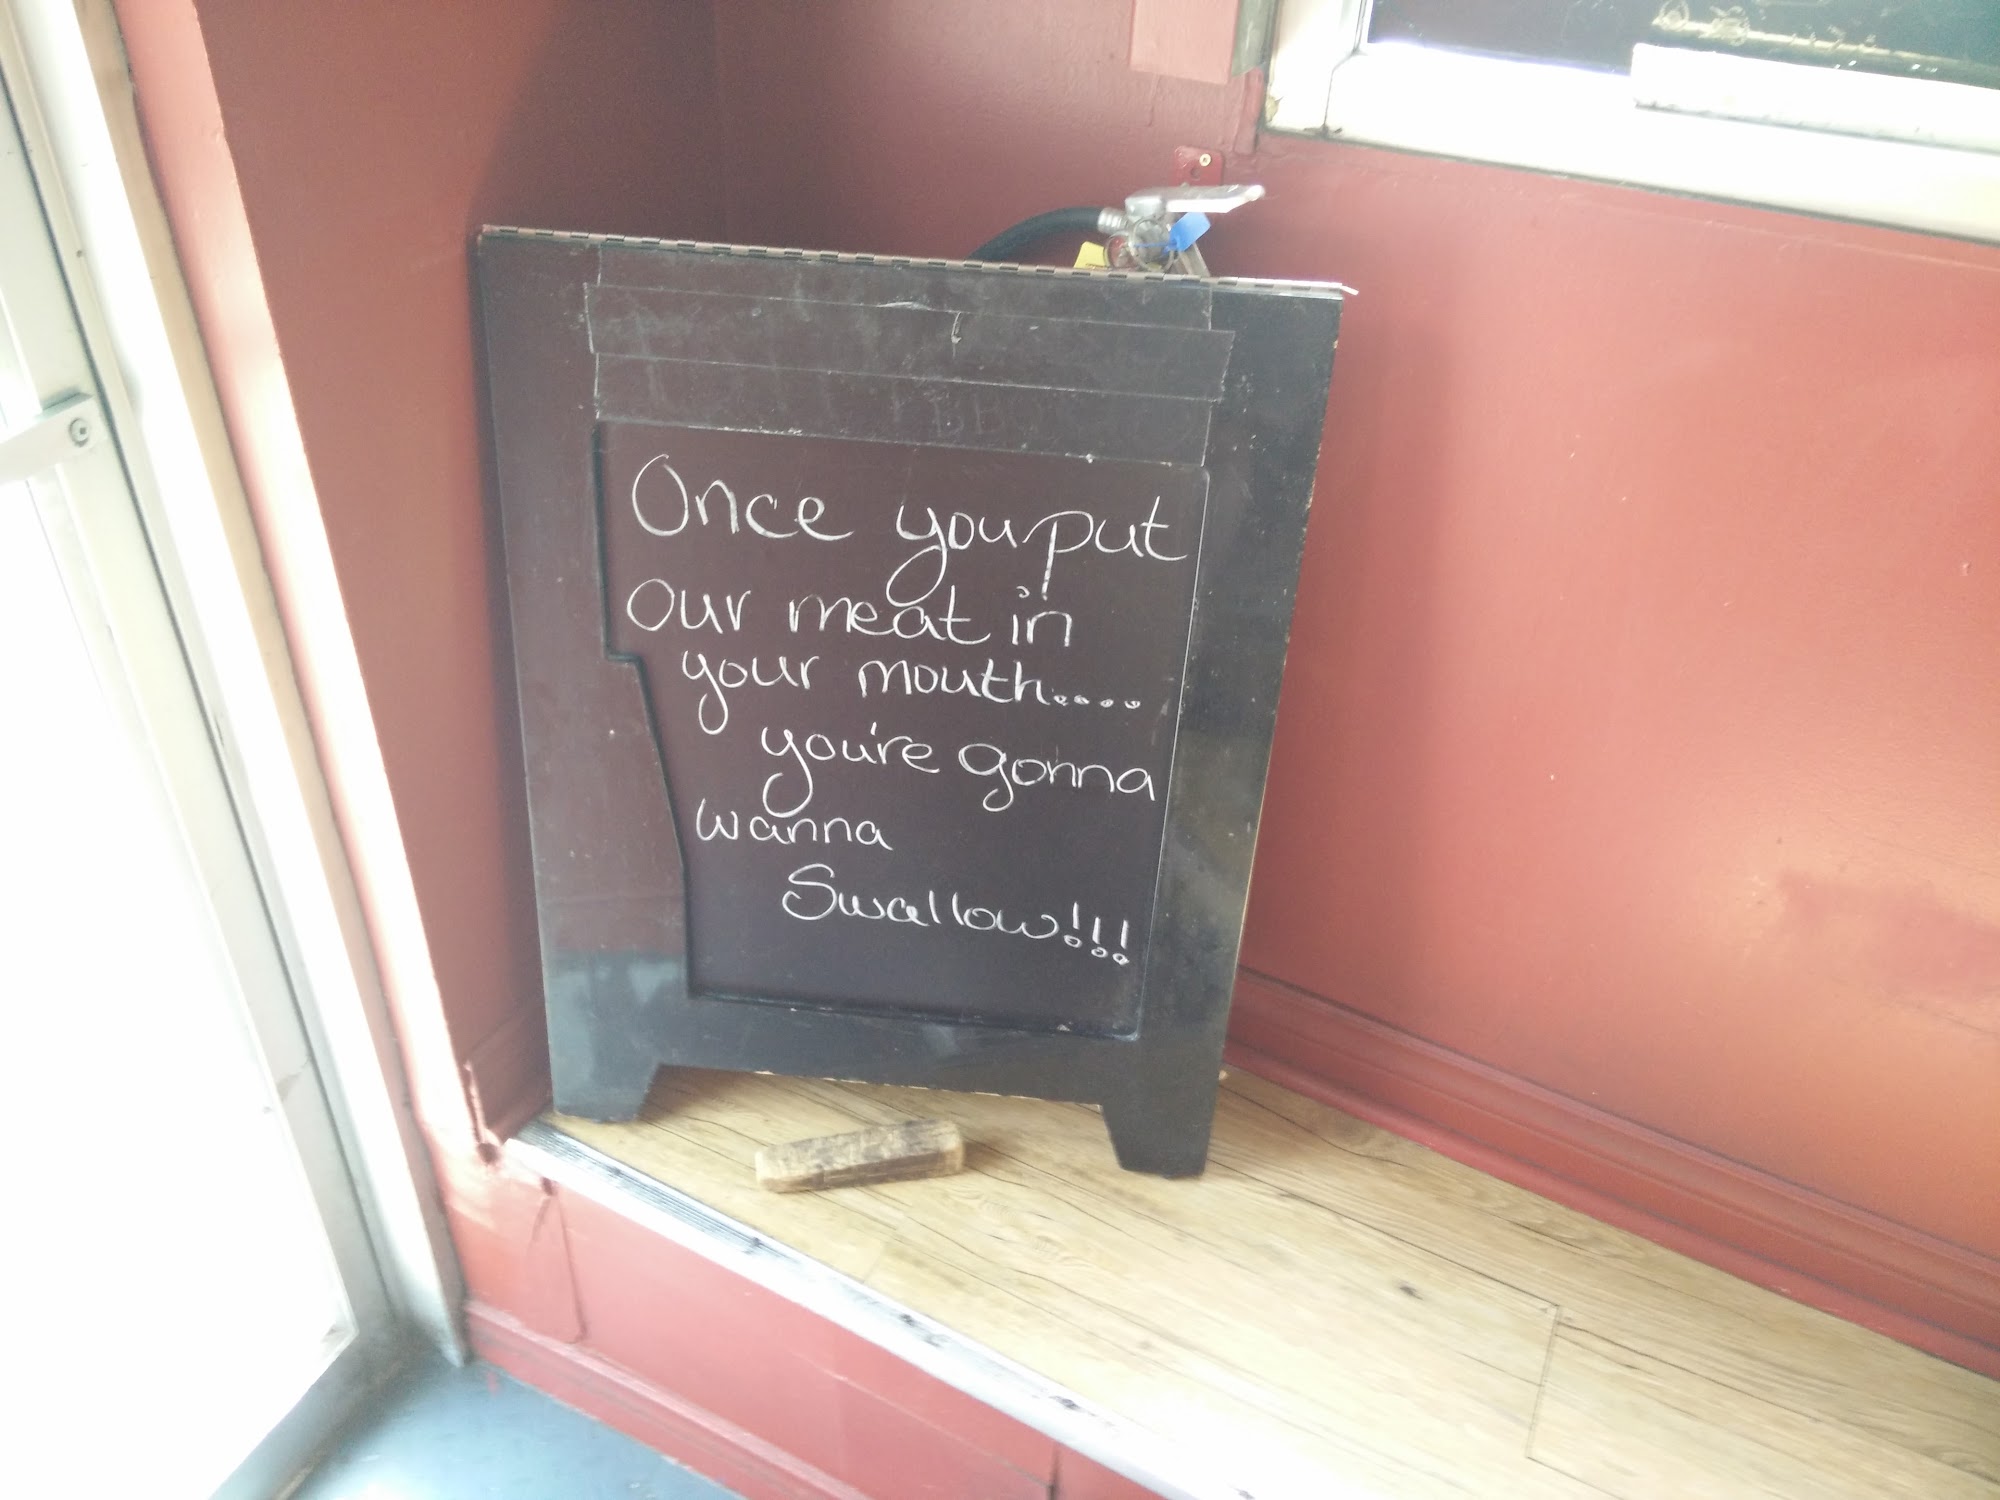 BBQ
Once you put
our meat in
your mouth....
you're gonna
wanna
Swallow!!!